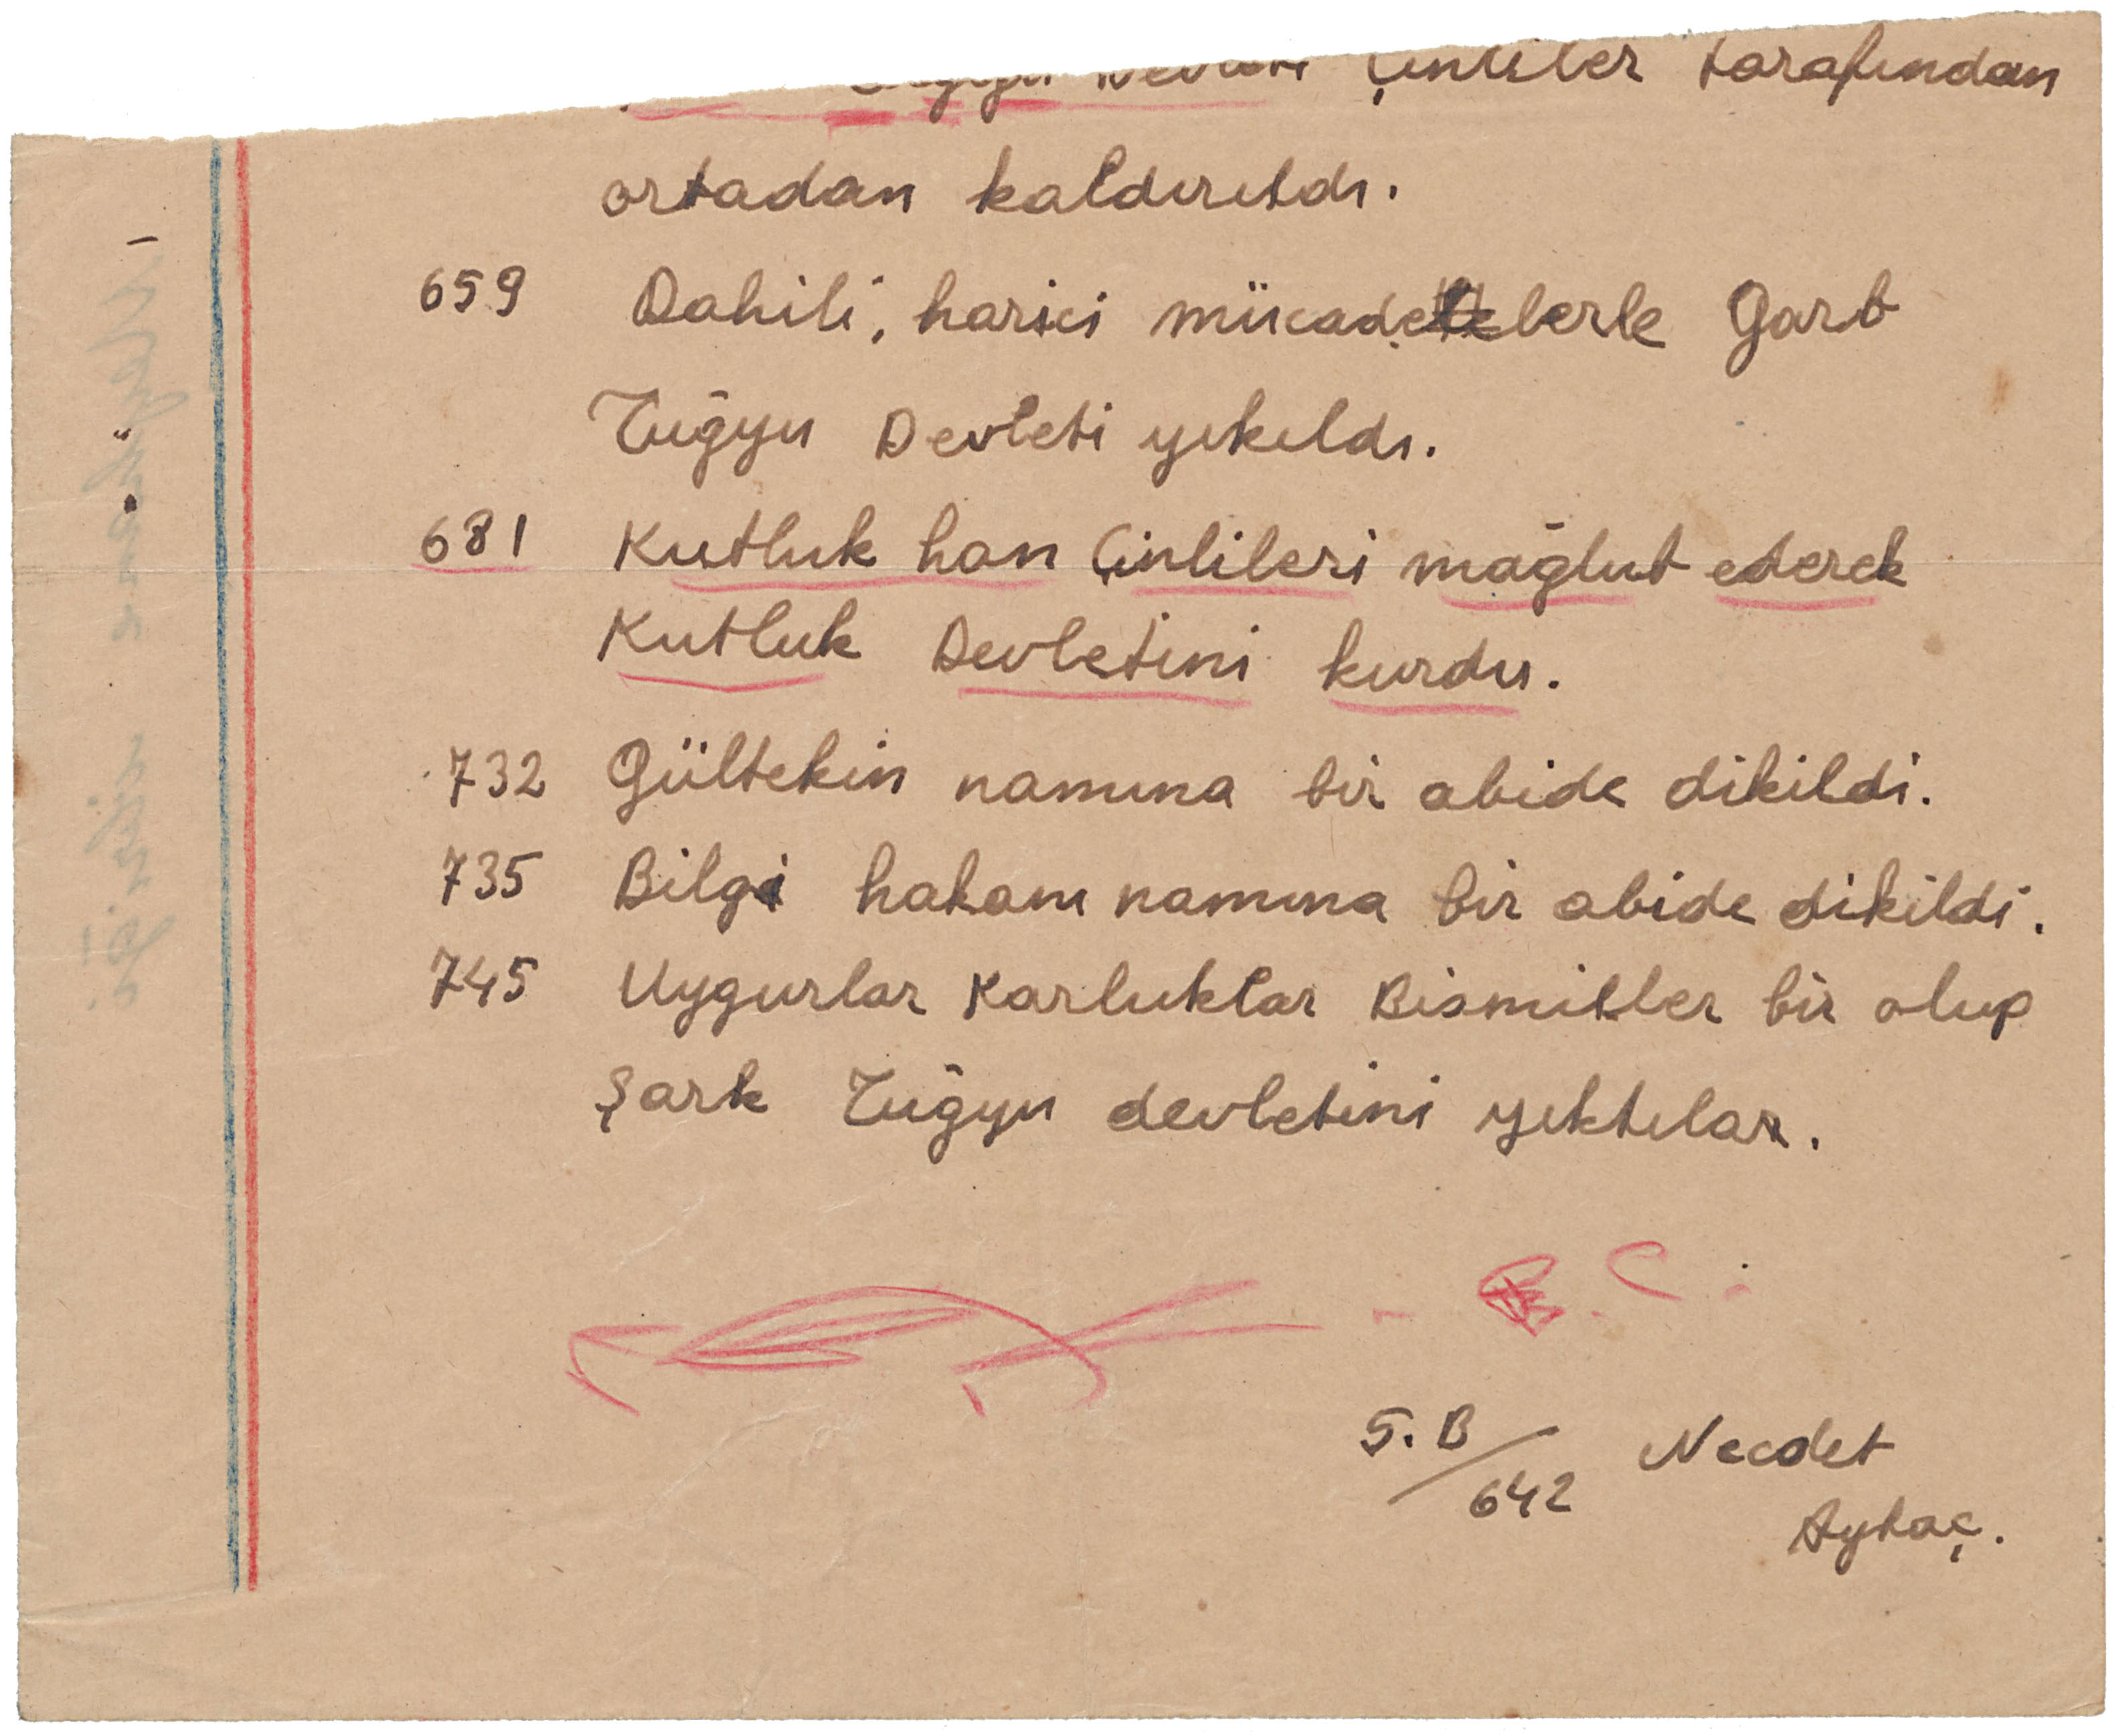 Tüğyu Devleti Çinliler tarafından
ortadan kaldırıldı.
659 Dahili, harici mücadelelerle Garb
Tüğyu Devleti yıkıldı.
681 Kutluk han Çinlileri mağlub ederek
Kutluk Devletini kurdu.
732 Gültekin namına bir abide dikildi.
735 Bilgi hakanı namına bir abide dikildi.
745 Uygurlar Karluklar Bismiller bir olup
Şark Tüğyu devletini yıktılar.
5. B / 642 Necdet
Aytaç.